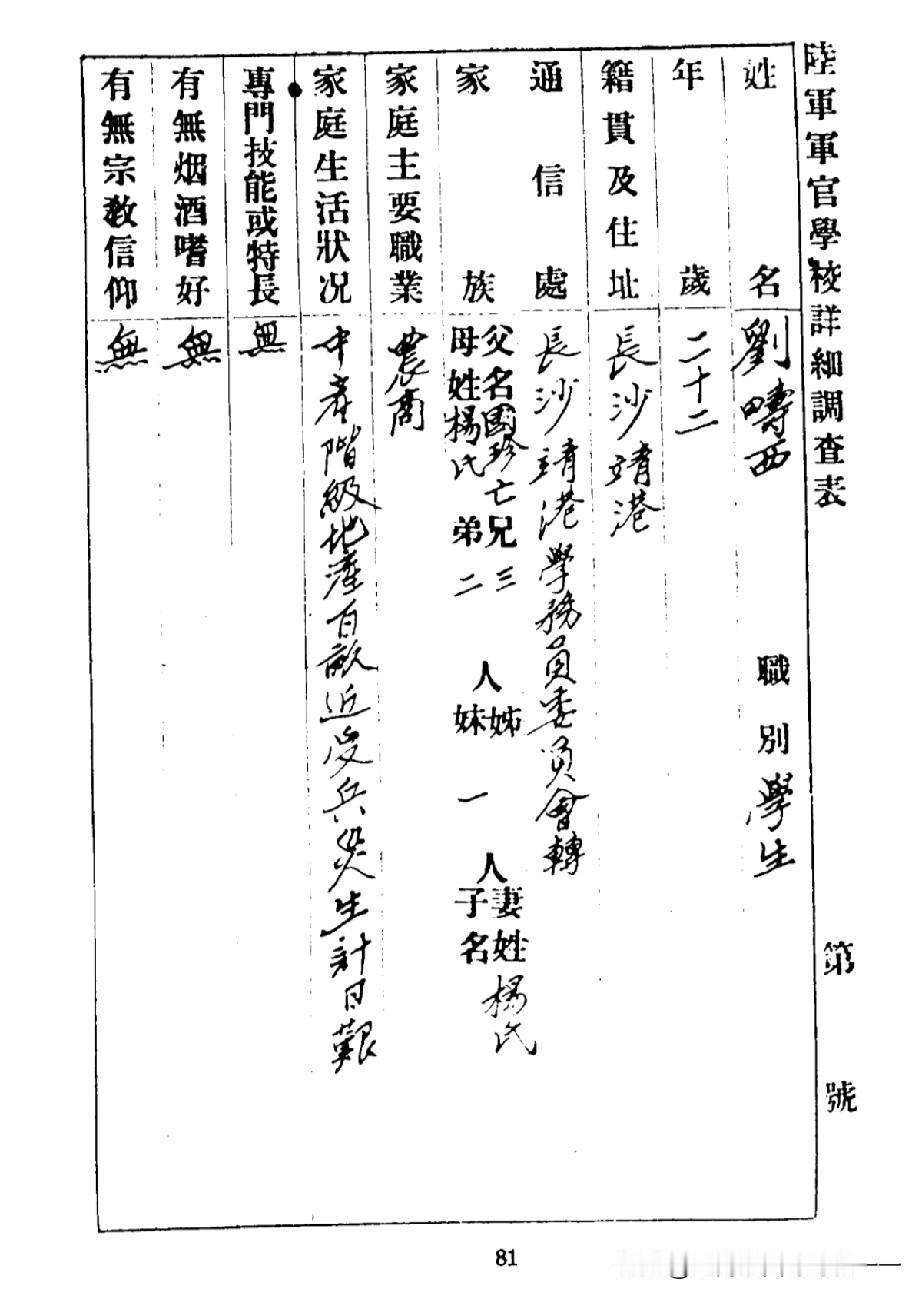 陸軍軍官學校詳細調查表 第 號
姓名 劉疇西 職別 學生
年歲 二十二
籍貫及住址 長沙靖港
通信處 長沙靖港學務員委員會轉
家族 父名國珍亡 兄三人 姊 妻姓楊氏
母姓楊氏 弟二 妹一人 子名
家庭主要職業 農商
家庭生活狀況 中產階級地產百畝近受兵災生計日艱
專門技能或特長 無
有無烟酒嗜好 無
有無宗教信仰 無
81